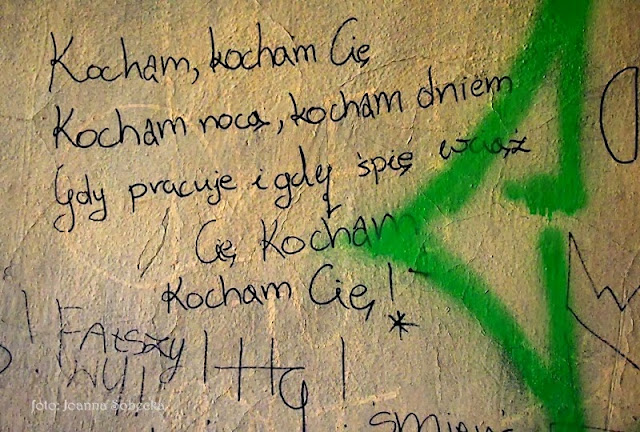 Kocham, kocham Cię
Kocham nocą, kocham dniem
Gdy pracuje i gdy śpię wciąż
Cię Kocham
Kocham Cię!
! FAŁSZY
WY!
foto: Joanna Sobecka